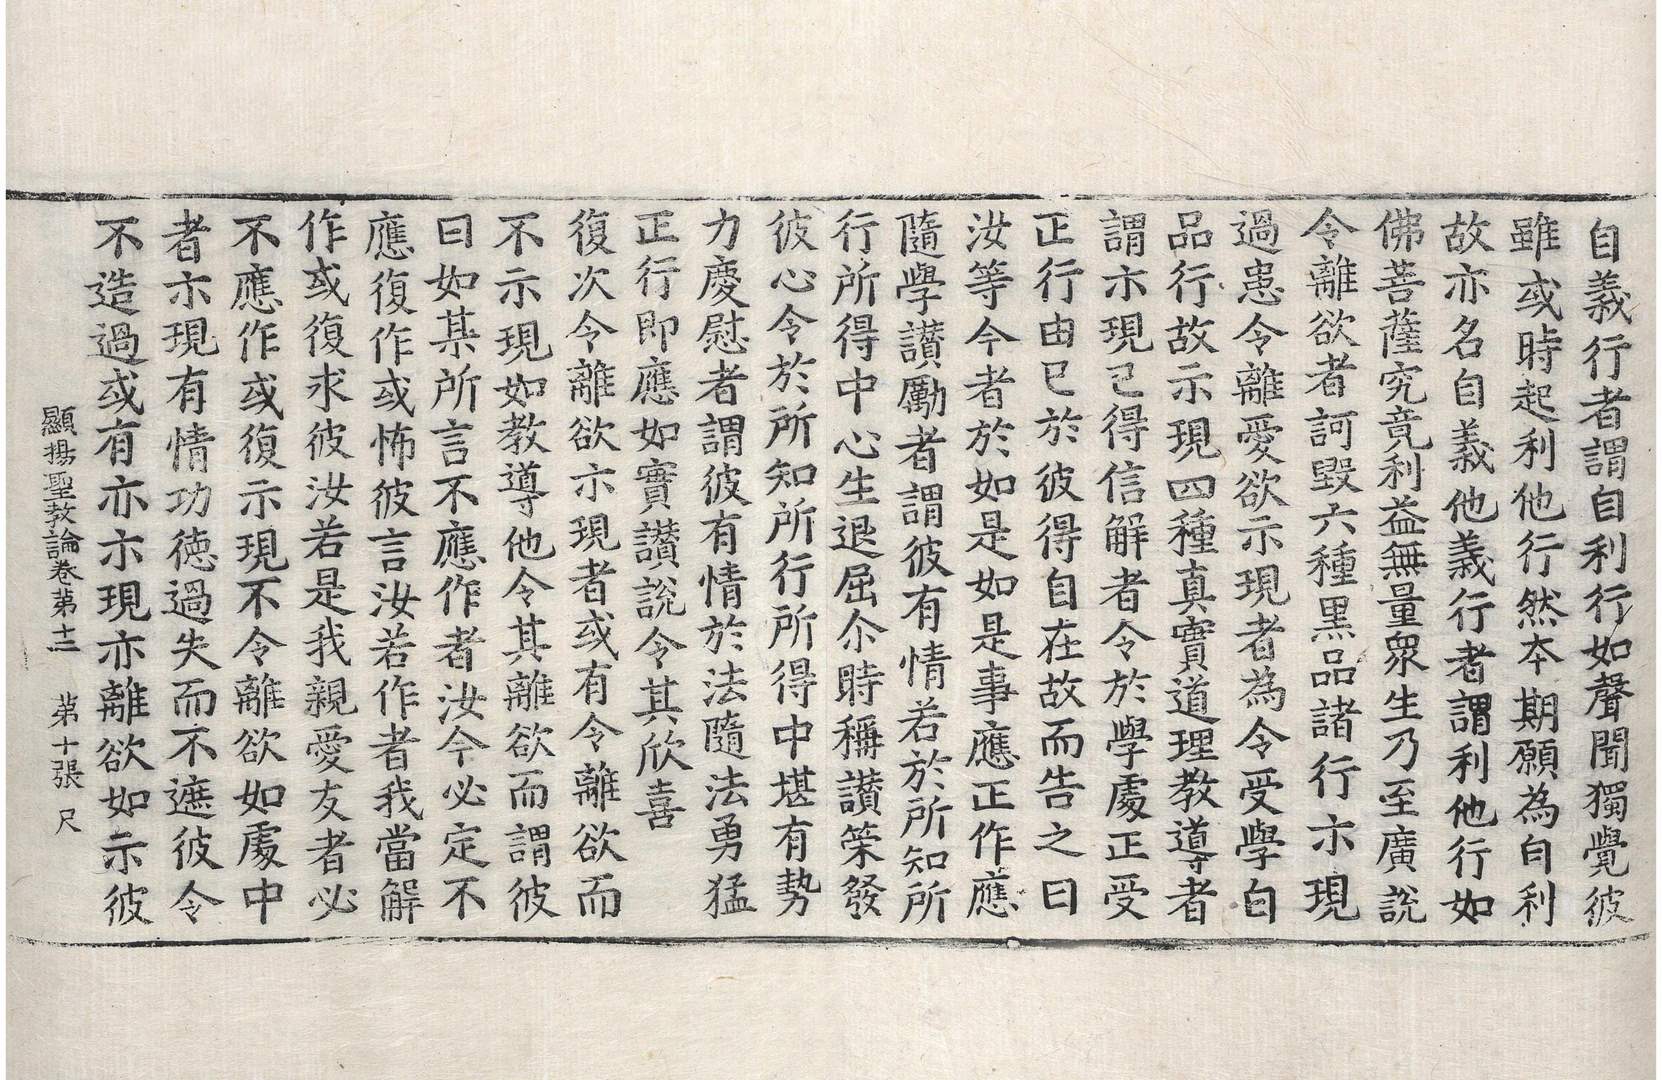 自義行者謂自利行如聲聞獨覺彼
雖或時起利他行然本期願為自利
故亦名自義他義行者謂利他行如
佛菩薩究竟利益無量眾生乃至廣說
令離欲者訶毀六種黑品諸行示現
過患令離愛欲示現者為令受學白
品行故示現四種真實道理教導者
謂示現已得信解者令於學處正受
正行由已於彼得自在故而告之曰
汝等今者於如是如是事應正作應
隨學讃勵者謂彼有情若於所知所
行所得中心生退屈尒時稱讃策發
彼心令於所知所行所得中堪有勢
力慶慰者謂彼有情於法隨法勇猛
正行即應如實讃說令其欣喜
復次令離欲示現者或有令離欲而
不示現如教導他令其離欲而謂彼
曰如某所言不應作者汝今必定不
應復作或怖彼言汝若作者我當解
作或復求彼汝若是我親愛友者必
不應作或復示現不令離欲如處中
者示現有情功德過失而不遮彼令
不造過或有亦示現亦離欲如示彼
顯揚聖教論卷第十三 第十張 尺